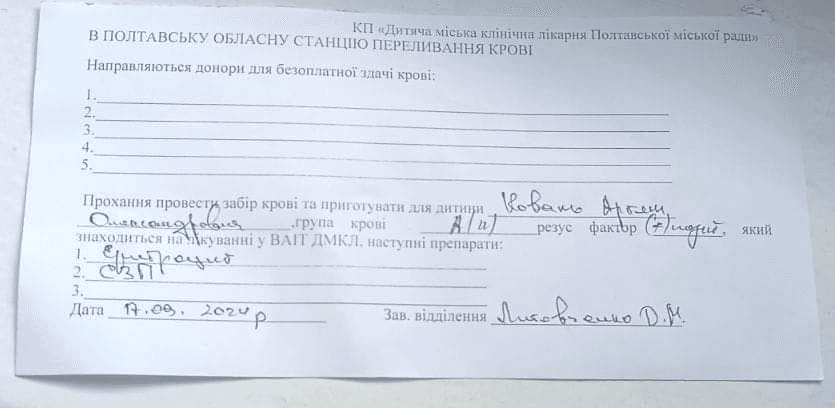 КП «Дитяча міська клінічна лікарня Полтавської міської ради»
В ПОЛТАВСЬКУ ОБЛАСНУ СТАНЦІЮ ПЕРЕЛИВАННЯ КРОВІ
Направляються донори для безоплатної здачі крові:
1.
2.
3.
4.
5.
Прохання провести забір крові та приготувати для дитини Коваль Артем
Олександрович ,група крові А(II) резус фактор (+) , який
знаходиться на лікуванні у ВАІТ ДМКЛ, наступні препарати:
1. Еритроцит
2. СЗП
3.
Дата 17.09.2024р Зав. відділення Литовченко Д.М.